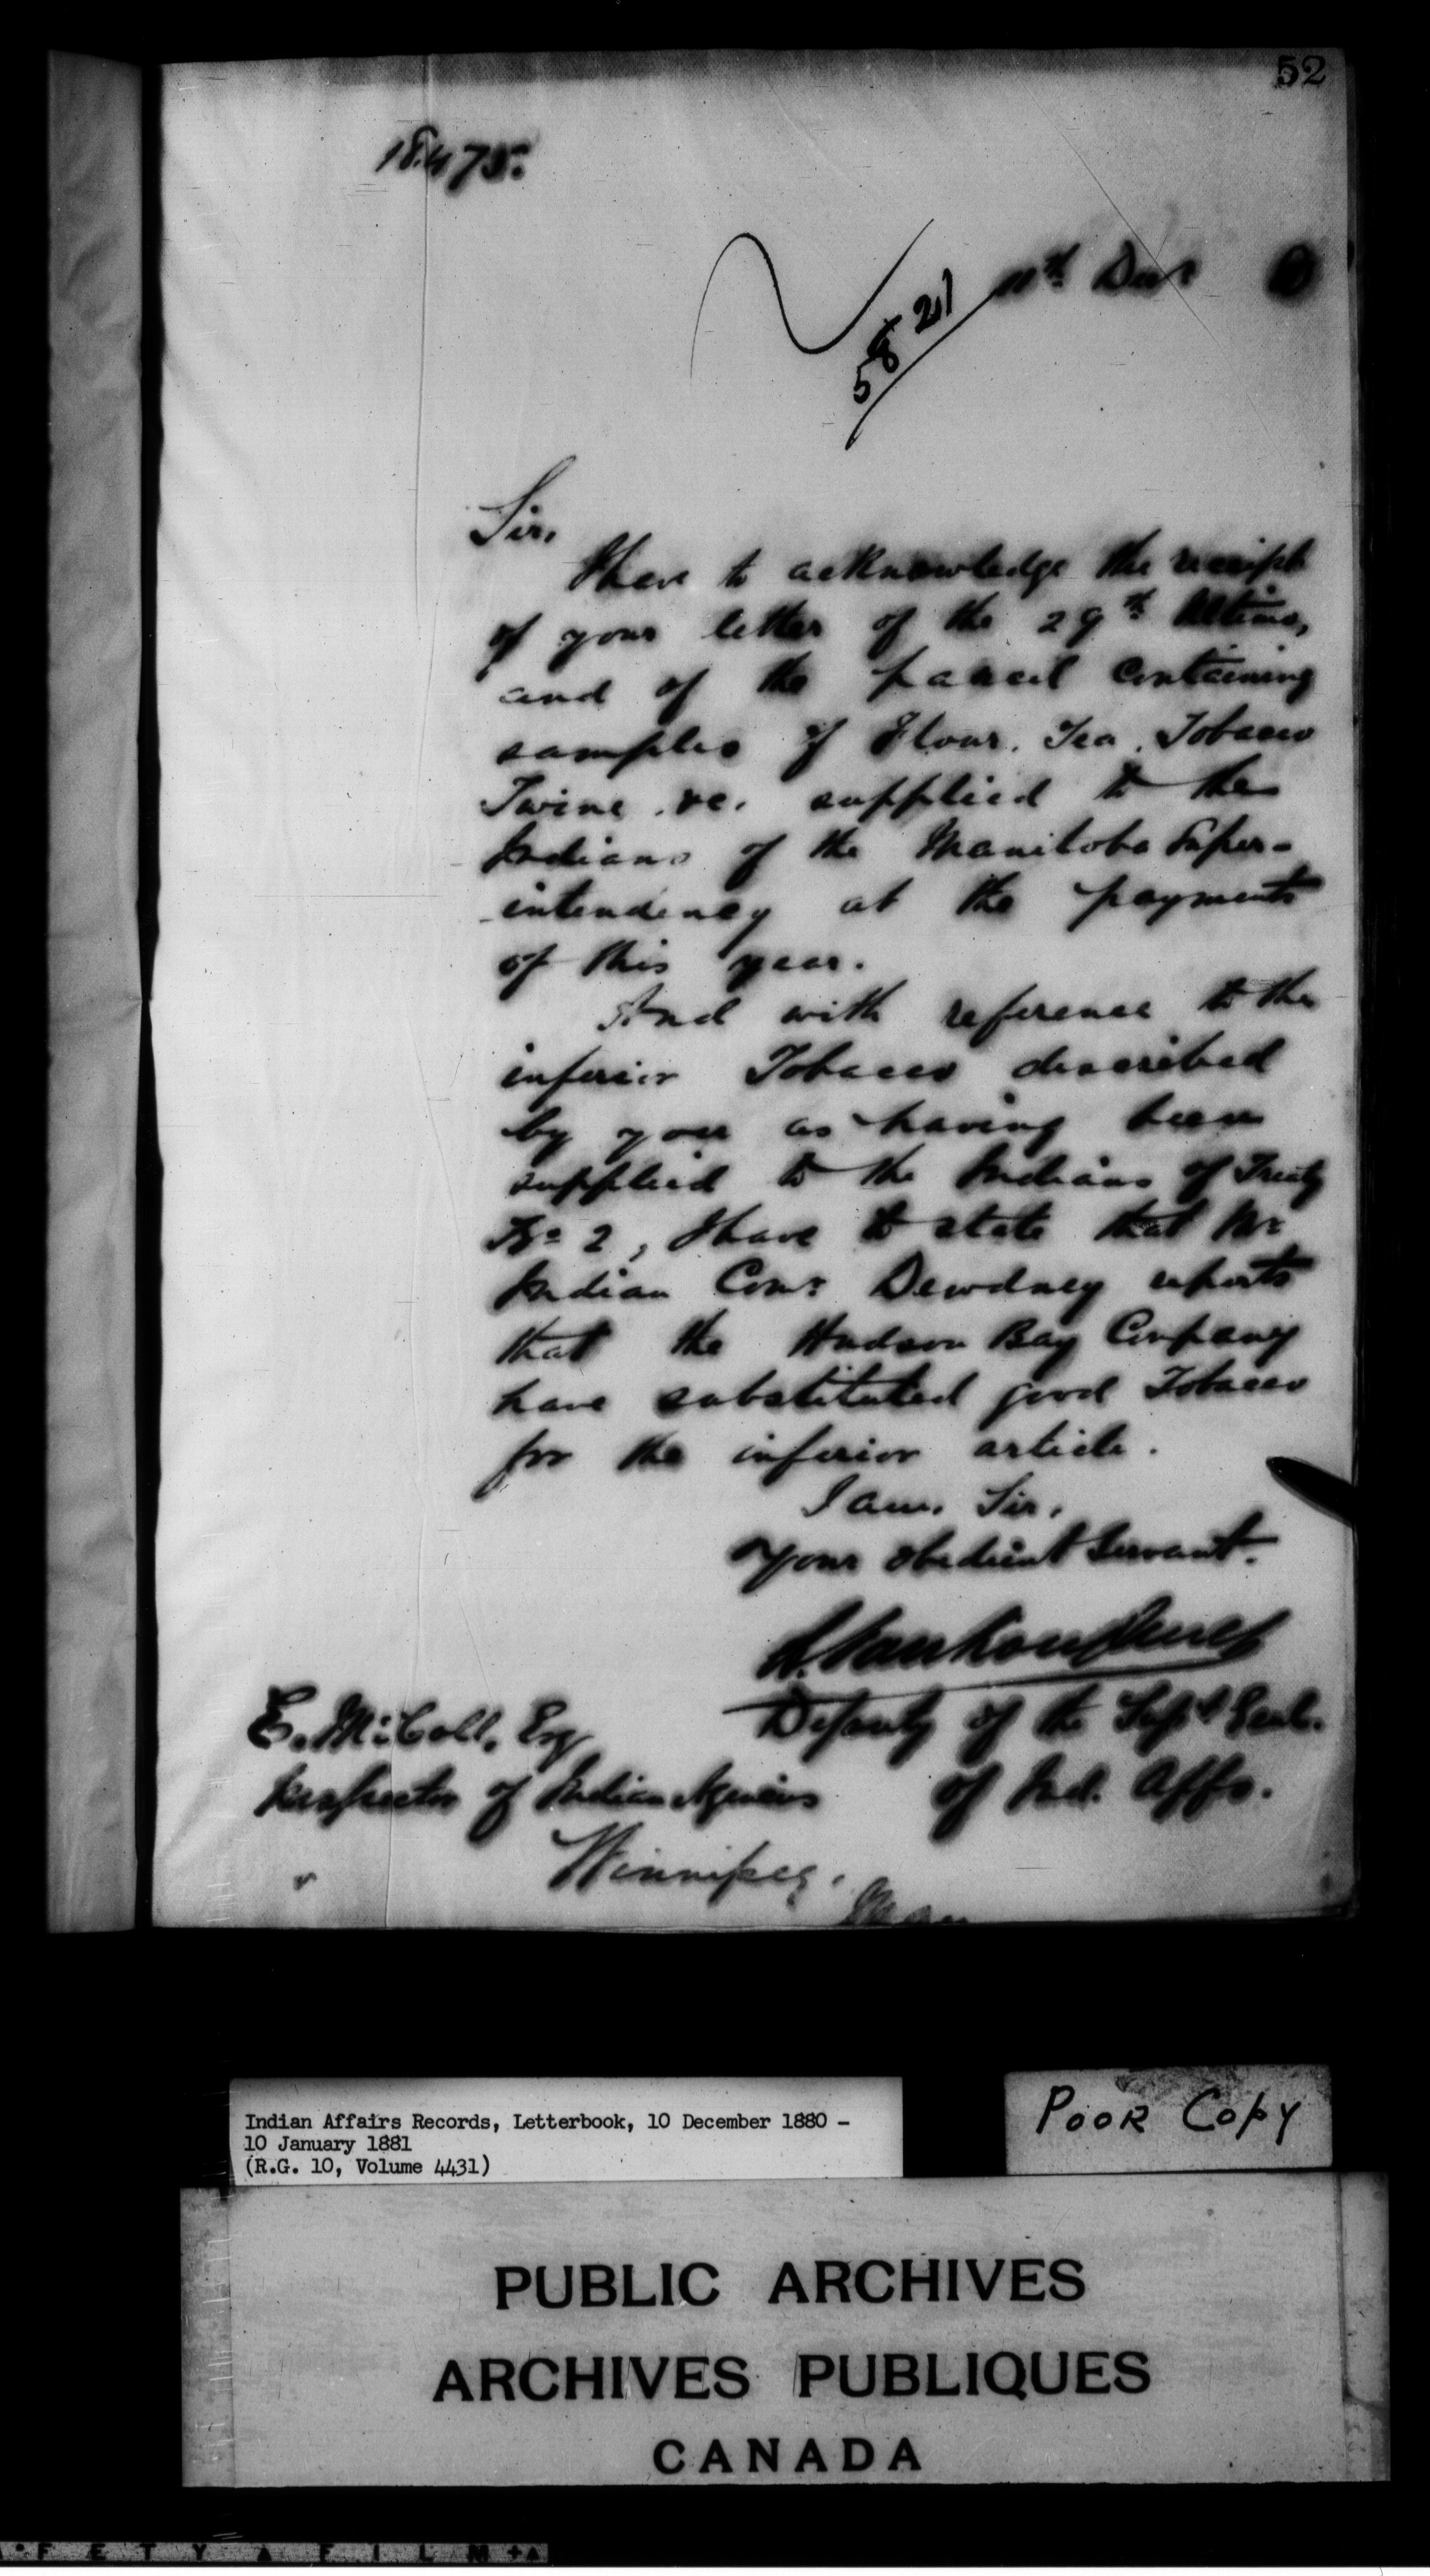 52
18,475.
11th Decr
58 21
Sir,
I have to acknowledge the receipt
of your letter of the 29th Ultimo,
and of the parcel containing
samples of Flour, Tea, Tobacco
Twine &c. supplied to the
Indians of the Manitoba Super-
-intendency at the payments
of this year.
And with reference to the
inferior Tobacco described
by you as having been
supplied to the Indians of Treaty
No 2, I have to state that Mr
Indian Comr Dewdney reports
that the Hudson Bay Company
have substituted good Tobacco
for the inferior article.
I am, Sir,
Your obedient Servant.
L. VanKoughnet
Deputy of the Supt Genl.
of Ind. Affs.
E. McColl, Esq
Inspector of Indian Agencies
Winnipeg,
Man
Indian Affairs Records, Letterbook, 10 December 1880 -
10 January 1881
(R.G. 10, Volume 4431)
POOR COPY
PUBLIC ARCHIVES
ARCHIVES PUBLIQUES
CANADA
F E T Y A F I L M